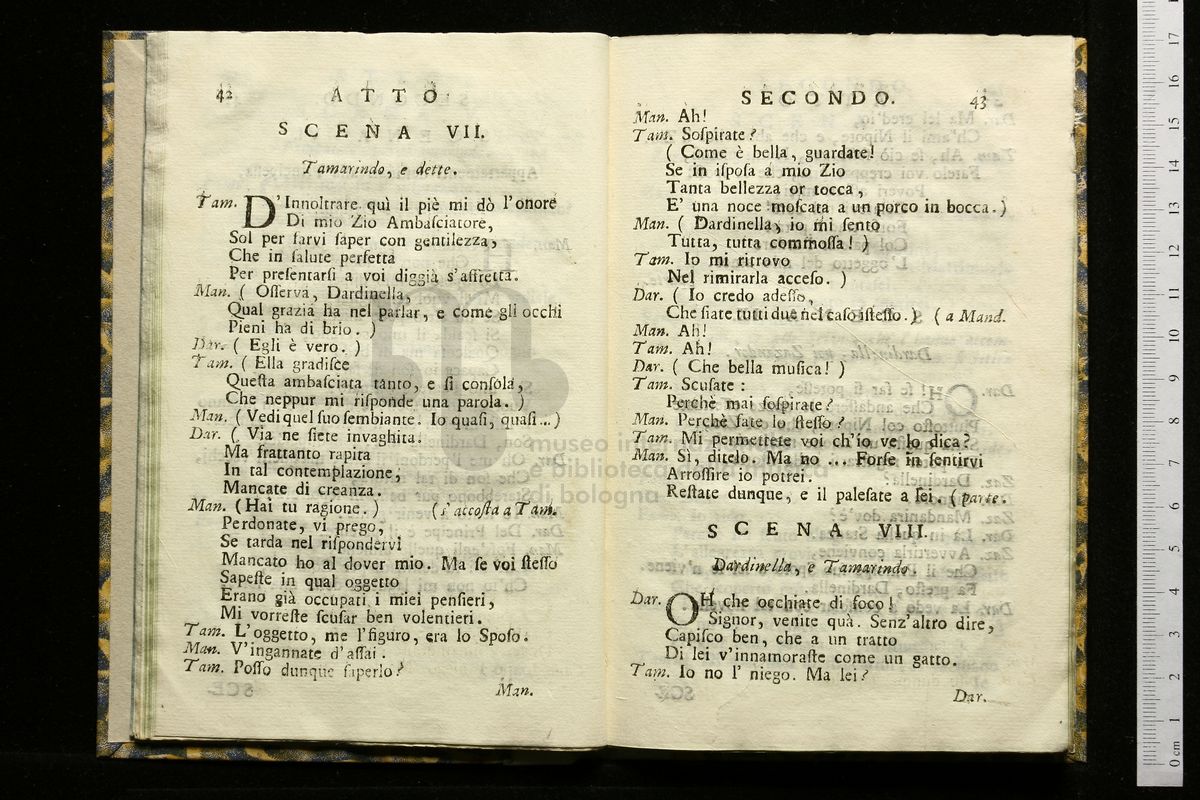 42 ATTO
SCENA VII.
Tamarindo, e dette.
Tam. D'Innoltrare quì il piè mi dò l'onore
Di mio Zio Ambaſciatore,
Sol per farvi ſaper con gentilezza,
Che in ſalute perfetta
Per preſentarſi a voi diggià s'affretta.
Man. ( Oſſerva, Dardinella,
Qual grazia ha nel parlar, e come gli occhi
Pieni ha di brio. )
Dar. ( Egli è vero. )
Tam. ( Ella gradiſce
Queſta ambaſciata tanto, e ſi conſola,
Che neppur mi riſponde una parola. )
Man. ( Vedi quel ſuo ſembiante. Io quaſi, quaſi... )
Dar. ( Via ne ſiete invaghita.
Ma frattanto rapita
In tal contemplazione,
Mancate di creanza.
Man. (Hai tu ragione. ) (s'accoſta a Tam.
Perdonate, vi prego,
Se tarda nel riſpondervi
Mancato ho al dover mio. Ma ſe voi ſteſſo
Sapeſte in qual oggetto
Erano già occupati i miei penſieri,
Mi vorreſte ſcuſar ben volentieri.
Tam. L'oggetto, me l'figuro, era lo Spoſo.
Man. V'ingannate d'aſſai.
Tam. Poſſo dunque ſaperlo?
Man.
SECONDO. 43
Man. Ah!
Tam. Soſpirate?
( Come è bella, guardate!
Se in iſpoſa a mio Zio
Tanta bellezza or tocca,
E' una noce moſcata a un porco in bocca. )
Man. ( Dardinella, io mi ſento
Tutta, tutta commoſſa! )
Tam. Io mi ritrovo
Nel rimirarla acceſo. )
Dar. ( Io credo adeſſo,
Che ſiate tutti due nel caſo iſteſſo. ) ( a Mand.
Man. Ah!
Tam. Ah!
Dar. ( Che bella muſica! )
Tam. Scuſate :
Perchè mai ſoſpirate?
Man. Perchè fate lo ſteſſo?
Tam. Mi permettete voi ch'io ve lo dica?
Man. Sì, ditelo. Ma no ... Forſe in ſentirvi
Arroſſire io potrei.
Reſtate dunque, e il paleſate a lei. ( parte.
SCENA VIII.
Dardinella, e Tamarindo.
Dar. OH che occhiate di foco!
Signor, venite quà. Senz'altro dire,
Capiſco ben, che a un tratto
Di lei v'innamoraſte come un gatto.
Tam. Io no l' niego. Ma lei?
Dar.
museo
e biblioteca
di bologna